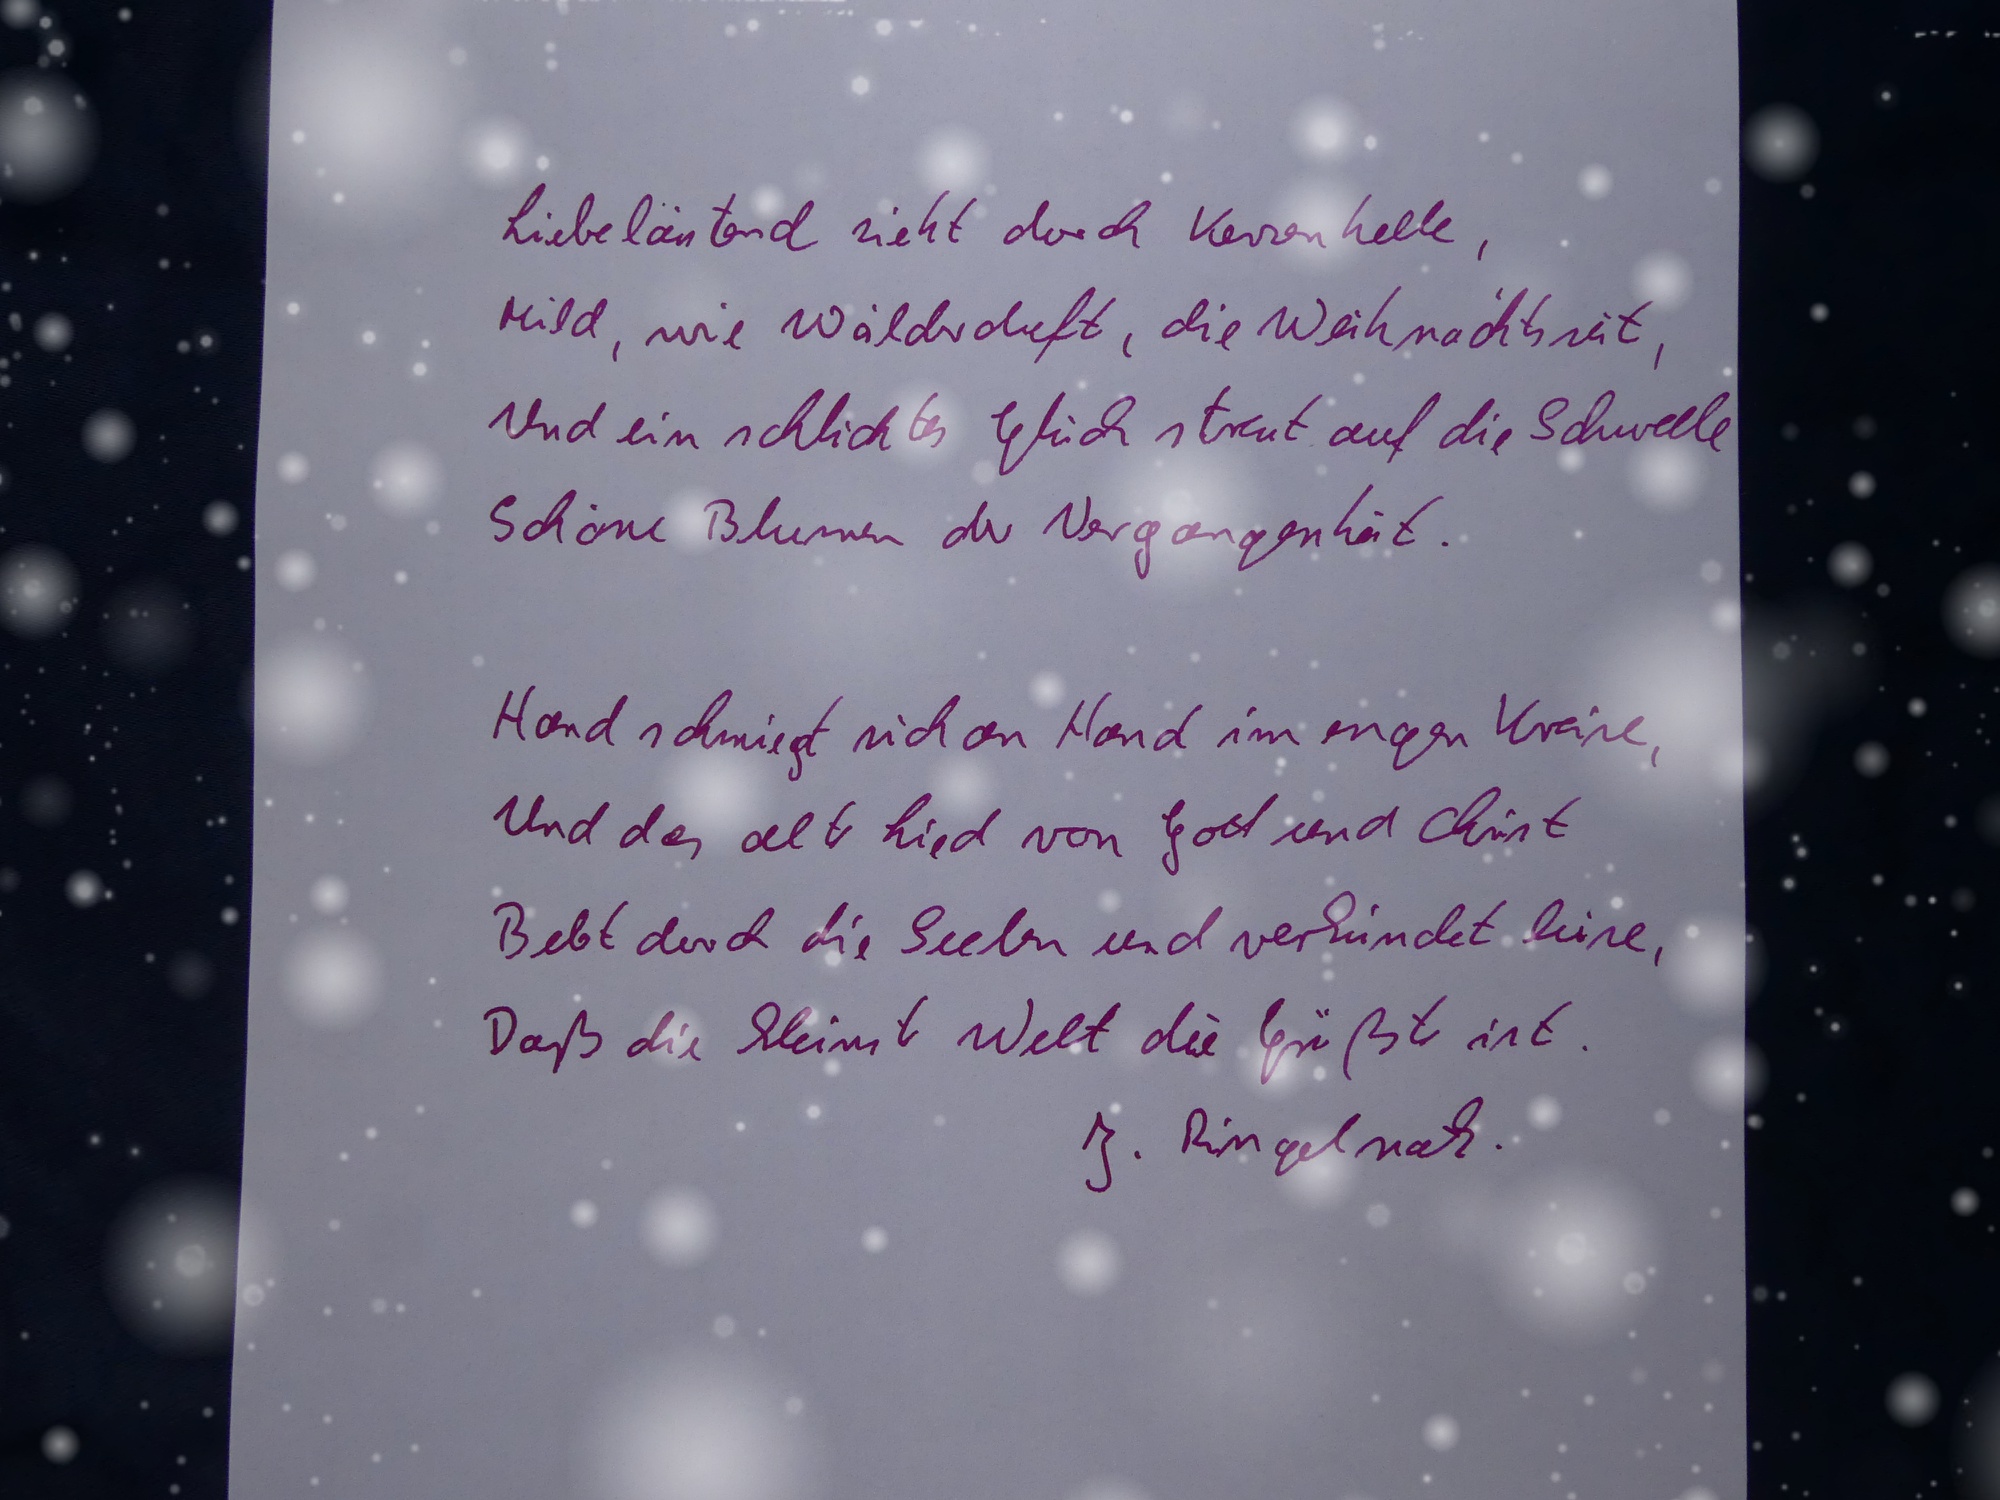 Liebeläutend zieht durch Kerzenhelle,
Mild, wie Wälderduft, die Weihnachtszeit,
Und ein schlichtes Glück streut auf die Schwelle
Schöne Blumen der Vergangenheit.
Hand schmiegt sich an Hand im engen Kreise,
Und das alte Lied von Gott und Christ
Bebt durch die Seelen und verkündet leise,
Daß die kleinste Welt die größte ist.
J. Ringelnatz.